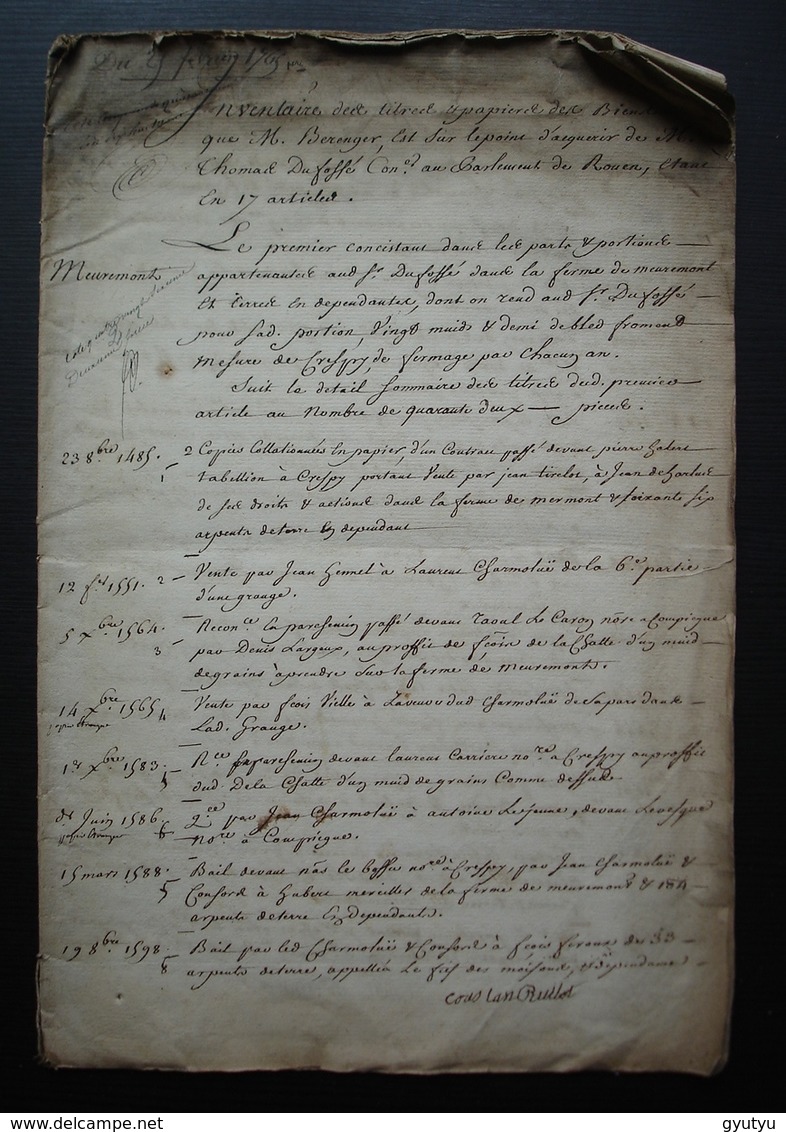 Du 25 fevrier 1765
Inventaire des titres & papiers des Biens
que M. Berenger, Est Sur lepoint d'aquerir de M.
Thomas Dufossé Con.er au Parlement de Rouen, Etant
En 17 articles.
Le premier concistant dans les parts & portions
Meuremont
appartenantes aud Sr. Dufossé dans la ferme de meuremont
Et terres En dependantes, dont on rend aud Sr. Dufossé
pour Sad. portion, Vingt muids & demi de bled froment
Mesure de Crespy, de fermage par Chacun an.
Suit le detail Sommaire des titres dud. premier
article au Nombre de quarante deux pieces.
23 8bre 1485. 1 2 Copies Collationnées En papier, d'un Contract passé devant pierre
tabellion à Crespy portant Vente par jean tirelot, à Jean
de Ses droits & actions dans la ferme de mermont & Soixante Six
arpents de terre En dependant
12 1551. 2 Vente par Jean Hennet à Laurent Charmoluë de la 6e. partie
d'une grange.
5 xbre 1564. 3 Recon.ce En parchemin passé devant raoul Le Caron nore a Compiegne
par Denis Largeux, au proffit de fçois de la Chatte d'un muid
de grains à prendre Sur la ferme de Meuremont.
14 xbre 1565 4 Vente par fçois Vielle à La veuve dud Charmoluë de Sa part dans
papier
Lad. Grange.
1er xbre 1583. 5 Rce En parchemin devant laurent Carriere nore a Crespy au proffit
dud. De la Chatte d'un muid de grains Comme dessus.
Juin 1586. 6 par Jean Charmoluë à antoine Lejeune, devant Levesque
papier
Nore à Compiegne.
15 mars 1588. Bail devant nas le bossu nore à Crespy, par Jean Charmoluë &
Consors à Hubert de la ferme de meuremont & 184
arpents de terre En Dependants.
19 8bre 1598. 8 Bail par led Charmoluë & Consors à fçois feroux des 33
arpents de terre, appellés Le fief des moisons, & dependances
gyutyu